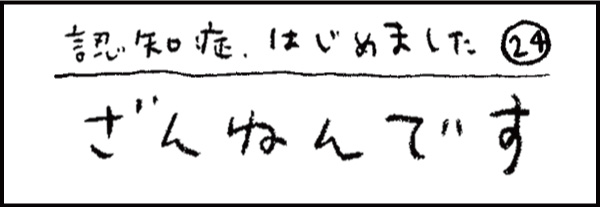 認知症、はじめました ㉔
ざんねんです